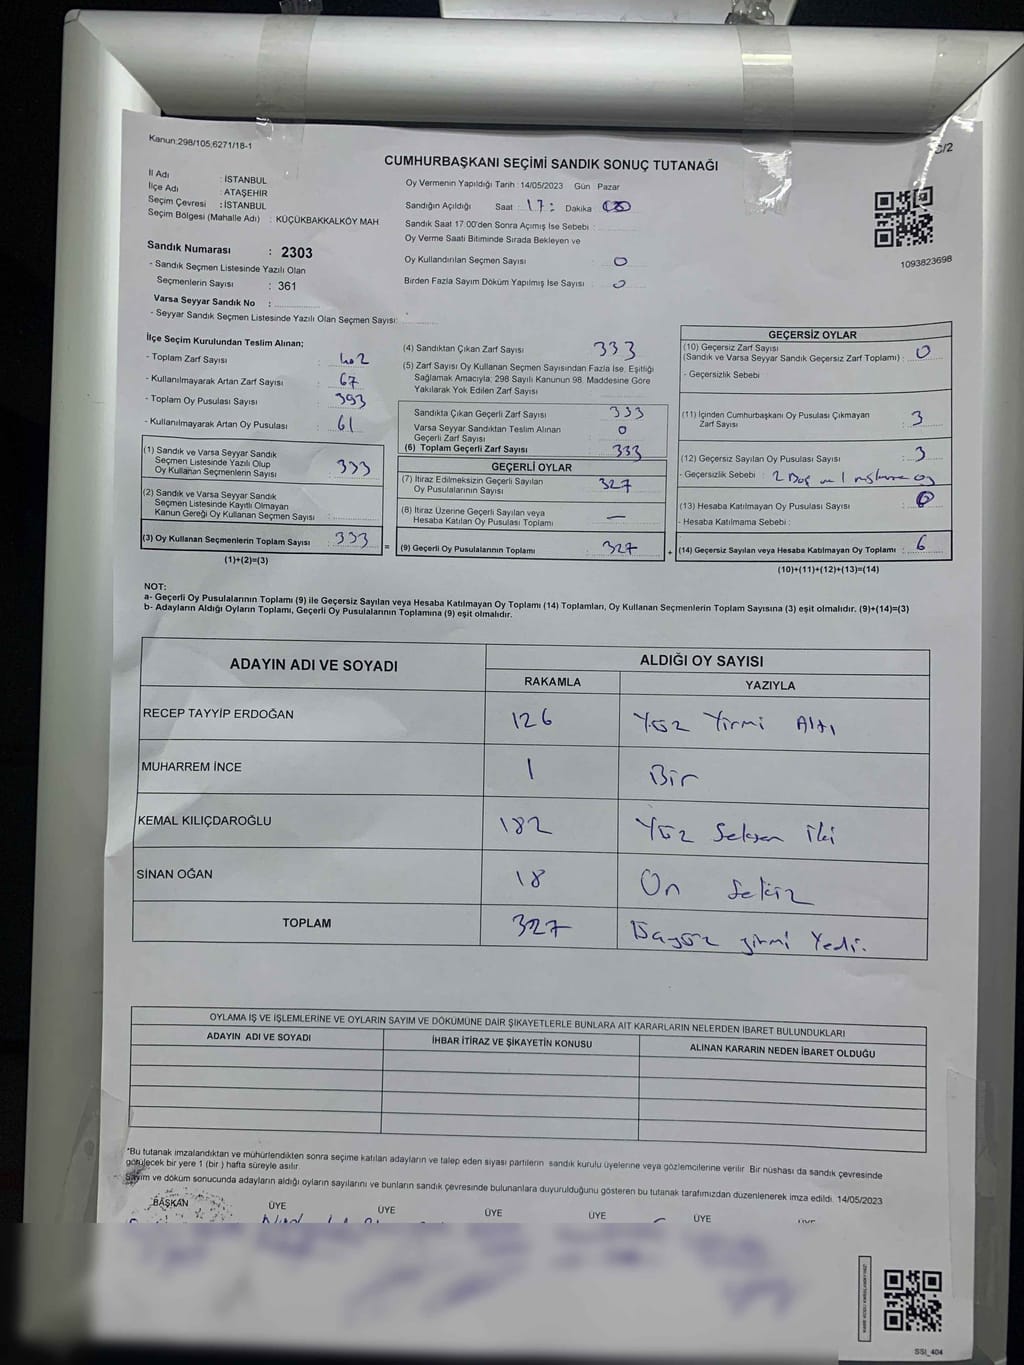 Kanun:298/105,6271/18-1
C/2
CUMHURBAŞKANI SEÇİMİ SANDIK SONUÇ TUTANAĞI
İl Adı : İSTANBUL
İlçe Adı : ATAŞEHİR
Seçim Çevresi : İSTANBUL
Seçim Bölgesi (Mahalle Adı) : KÜÇÜKBAKKALKÖY MAH
Sandık Numarası : 2303
- Sandık Seçmen Listesinde Yazılı Olan
Seçmenlerin Sayısı : 361
Varsa Seyyar Sandık No :
- Seyyar Sandık Seçmen Listesinde Yazılı Olan Seçmen Sayısı:
Oy Vermenin Yapıldığı Tarih : 14/05/2023 Gün Pazar
Sandığın Açıldığı Saat : 17: Dakika 00
Sandık Saat 17:00'den Sonra Açımış İse Sebebi :
Oy Verme Saati Bitiminde Sırada Bekleyen ve
Oy Kullandırılan Seçmen Sayısı : 0
Birden Fazla Sayım Döküm Yapılmış İse Sayısı : 0
1093823698
İlçe Seçim Kurulundan Teslim Alınan;
- Toplam Zarf Sayısı : 402
- Kullanılmayarak Artan Zarf Sayısı : 67
- Toplam Oy Pusulası Sayısı : 393
- Kullanılmayarak Artan Oy Pusulası : 61
(1) Sandık ve Varsa Seyyar Sandık
Seçmen Listesinde Yazılı Olup
Oy Kullanan Seçmenlerin Sayısı : 333
(2) Sandık ve Varsa Seyyar Sandık
Seçmen Listesinde Kayıtlı Olmayan
Kanun Gereği Oy Kullanan Seçmen Sayısı :
(3) Oy Kullanan Seçmenlerin Toplam Sayısı : 333
(1)+(2)=(3)
=
(4) Sandıktan Çıkan Zarf Sayısı : 333
(5) Zarf Sayısı Oy Kullanan Seçmen Sayısından Fazla İse, Eşitliği
Sağlamak Amacıyla, 298 Sayılı Kanunun 98. Maddesine Göre
Yakılarak Yok Edilen Zarf Sayısı :
Sandıkta Çıkan Geçerli Zarf Sayısı : 333
Varsa Seyyar Sandıktan Teslim Alınan
Geçerli Zarf Sayısı : 0
(6) Toplam Geçerli Zarf Sayısı : 333
GEÇERLİ OYLAR
(7) İtiraz Edilmeksizin Geçerli Sayılan
Oy Pusulalarının Sayısı : 327
(8) İtiraz Üzerine Geçerli Sayılan veya
Hesaba Katılan Oy Pusulası Toplamı : —
(9) Geçerli Oy Pusulalarının Toplamı : 327
+
GEÇERSİZ OYLAR
(10) Geçersiz Zarf Sayısı
(Sandık ve Varsa Seyyar Sandık Geçersiz Zarf Toplamı) : 0
- Geçersizlik Sebebi
(11) İçinden Cumhurbaşkanı Oy Pusulası Çıkmayan
Zarf Sayısı : 3
(12) Geçersiz Sayılan Oy Pusulası Sayısı : 3
- Geçersizlik Sebebi : 2 Boş
(13) Hesaba Katılmayan Oy Pusulası Sayısı : 0
- Hesaba Katılmama Sebebi :
(14) Geçersiz Sayılan veya Hesaba Katılmayan Oy Toplamı : 6
(10)+(11)+(12)+(13)=(14)
NOT:
a- Geçerli Oy Pusulalarının Toplamı (9) ile Geçersiz Sayılan veya Hesaba Katılmayan Oy Toplamı (14) Toplamları, Oy Kullanan Seçmenlerin Toplam Sayısına (3) eşit olmalıdır. (9)+(14)=(3)
b- Adayların Aldığı Oyların Toplamı, Geçerli Oy Pusulalarının Toplamına (9) eşit olmalıdır.
ADAYIN ADI VE SOYADI
ALDIĞI OY SAYISI
RAKAMLA YAZIYLA
RECEP TAYYİP ERDOĞAN 126 Yüz Yirmi Altı
MUHARREM İNCE 1 Bir
KEMAL KILIÇDAROĞLU 182 Yüz Seksen iki
SİNAN OĞAN 18 On Sekiz
TOPLAM 327 Üçyüz yirmi Yedi.
OYLAMA İŞ VE İŞLEMLERİNE VE OYLARIN SAYIM VE DÖKÜMÜNE DAİR ŞİKAYETLERLE BUNLARA AİT KARARLARIN NELERDEN İBARET BULUNDUKLARI
ADAYIN ADI VE SOYADI İHBAR İTİRAZ VE ŞİKAYETİN KONUSU ALINAN KARARIN NEDEN İBARET OLDUĞU
*Bu tutanak imzalandıktan ve mühürlendikten sonra seçime katılan adayların ve talep eden siyasi partilerin sandık kurulu üyelerine veya gözlemcilerine verilir. Bir nüshası da sandık çevresinde
görülecek bir yere 1 (bir ) hafta süreyle asılır.
Sayım ve döküm sonucunda adayların aldığı oyların sayılarını ve bunların sandık çevresinde bulunanlara duyurulduğunu gösteren bu tutanak tarafımızdan düzenlenerek imza edildi. 14/05/2023
BAŞKAN ÜYE ÜYE ÜYE ÜYE ÜYE
SSI_404